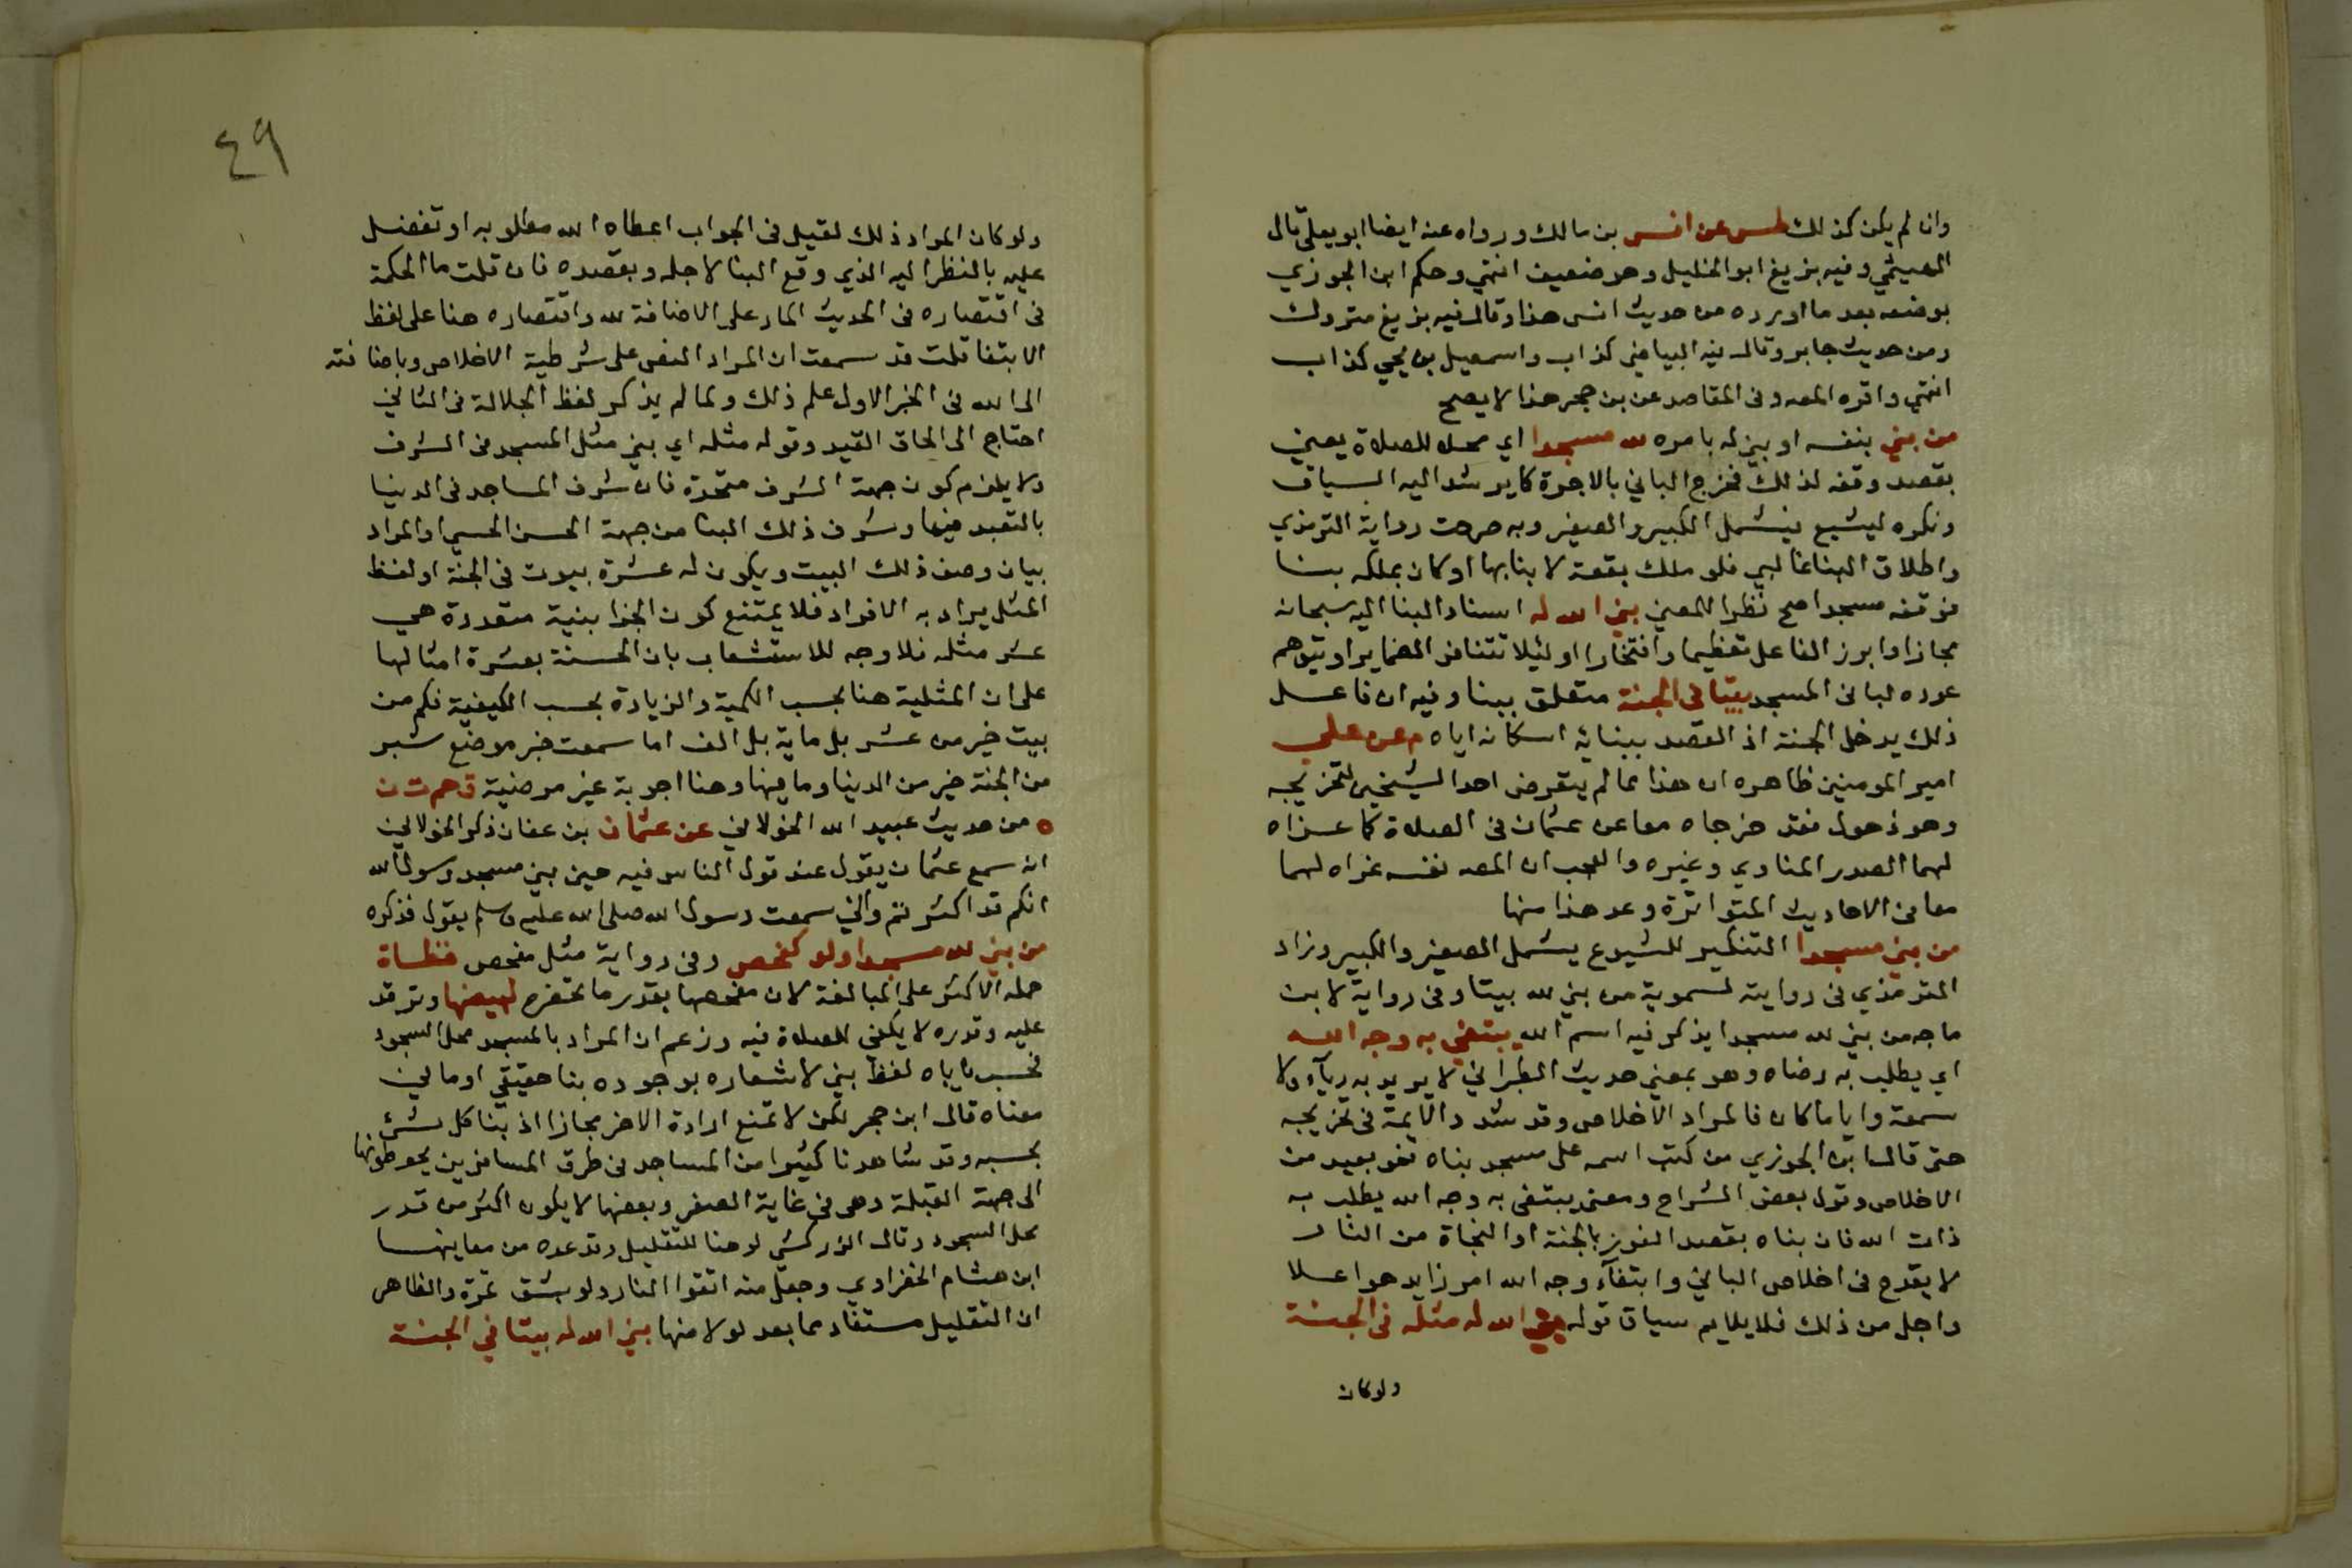 وان لم يكن كذلك طس عن انس بن مالك ورواه عنه ايضا ابو يعلى قال
الهيثمي وفيه بزيغ ابو الخليل وهو ضعيف انتهي وحكم ابن الجوزي
بوضعه بعد ما اورده من حديث انس هذا وقال فيه بزيغ متروك
ومن حديث جابر وقال فيه البياضي كذاب واسمعيل بن يحيي كذاب
انتهي واقره المصه وفى المقاصد عن بن حجر هذا لا يصح
من بني بنفسه او بني له بامره لله مسجدا اي محلا للصلاة يعني
بقصد وقفه لذلك فخرج الباني بالاجرة كما يرشد اليه السياق
ونكره ليشيع فيشمل الكبير والصغير وبه صرحت رواية الترمذي
واطلاق البنا غالبي فلو ملك بقعة لا بنا بها او كان يملكه بنا
فوقفه مسجدا صح نظرا للمعني بني الله له اسناد البنا اليه سبحانه
مجازا وابرز الفاعل تعظيما وافتخارا او لئيلا تتنافر الضماير او يتوهم
عوده لبانى المسجد بيتا في الجنة متعلق ببنا وفيه ان فاعل
ذلك يدخل الجنة اذ القصد ببنائه اسكانه اياه م عن علي
امير المومنين ظاهره ان هذا مما لم يتعرض احد الشيخين لتخريجه
وهو ذهول فقد خرجاه معا عن عثمان فى الصلاة كما عزاه
لهما الصدر المناوي وغيره والعجب ان المصه نفسه عزاه لهما
معا فى الاحاديث المتواترة وعد هذا منها
من بني مسجدا التنكير للشيوع يشمل الصغير والكبير وزاد
الترمذي فى روايته لسموية من بني لله بيتا وفى رواية لابن
ماجه من بني لله مسجدا يذكر فيه اسم الله يبتغي به وجه الله
اي يطلب به رضاه وهو بمعني حديث الطبراني لا يريد به رياء ولا
سمعة وايا ما كان فالمراد الاخلاص وقد شدد الايمة فى تحريجه
حتى قال ابن الجوزي من كتب اسمه على مسجد بناه فهو بعيد من
الاخلاص وقول بعض الشراح ومعنى يبتغى به وجه الله يطلب به
ذات الله فان بناه بقصد الفوز بالجنة او النجاة من النار
لا يقدح فى اخلاص الباني وابتغآء وجه الله امر زايد هو اعلا
واجل من ذلك فلا يلايم سياق قوله بني الله له مثله فى الجنة
ولو كان
٤٩
ولو كان المراد ذلك لقيل فى الجواب اعطاه الله مطلوبه او تفضل
عليه بالنظر اليه الذي وقع البنا لاجله وبقصده فان قلت ما الحكمة
فى اقتصاره فى الحديث المار على الاضافة لله واقتصاره هنا على لفظ
الابتغا قلت قد سمعت ان المراد النص على شرطية الاخلاص وباضافته
الى الله فى الخبر الاول علم ذلك ولما لم يذكر لفظ الجلالة فى الثاني
احتاج الى الحاق القيد وقوله مثله اي بني مثل المسجد فى الشرف
ولا يلزم كون جهة الشرف متحدة فان شرف المساجد فى الدنيا
بالتعبد فيها وشرف ذلك البنا من جهة الحسن الحسي او المراد
بيان وصف ذلك البيت ويكون له عشرة بيوت فى الجنة او لفظ
المثل يراد به الافراد فلا يمتنع كون الجزا بنية متعددة هي
عشر مثله فلا وجه للاستشعاب بان الحسنة بعشرة امثالها
على ان المثلية هنا بحسب الكمية والزيادة بحسب الكيفية فكم من
بيت خير من عشر بل ماية بل الف اما سمعت خبر موضع شبر
من الجنة خير من الدنيا وما فيها وهنا اجوبة غير مرضية ق حم ت ن
ه من حديث عبيد الله الخولاني عن عثمان بن عفان ذكر الخولاني
انه سمع عثمان يقول عند قول الناس فيه حين بني مسجد رسول الله
انكم قد اكثرتم واني سمعت رسول الله صلى الله عليه وسلم يقول فذكره
من بني لله مسجدا ولو كمفحص وفى رواية مثل مفحص قطاة
حمله الاكثر على المبالغة لان مفحصها بقدر ما تحفره لبيضها وترقد
عليه وقدره لا يكفي للصلاة فيه وزعم ان المراد بالمسجد محل السجود
فحسب ياباه لفظ بني لاشعاره بوجوده بنا حقيقي او ما في
معناه قال ابن حجر لكن لا تمنع ارادة الاخر مجازا اذ بنا كل شئ
بحسبه وقد شاهدنا كثيرا من المساجد فى طرق المسافرين يحوطونها
الى جهة القبلة وهى فى غاية الصغر وبعضها لا يكون اكثر من قدر
محل السجود وقال الزركشي لو هنا للتقليل وقد عده من معاينها
ابن هشام الخضراوي وجعل منه اتقوا النار ولو بشق تمرة والظاهر
ان التقليل مستفاد مما بعد لو لا منها بني الله له بيتا في الجنة